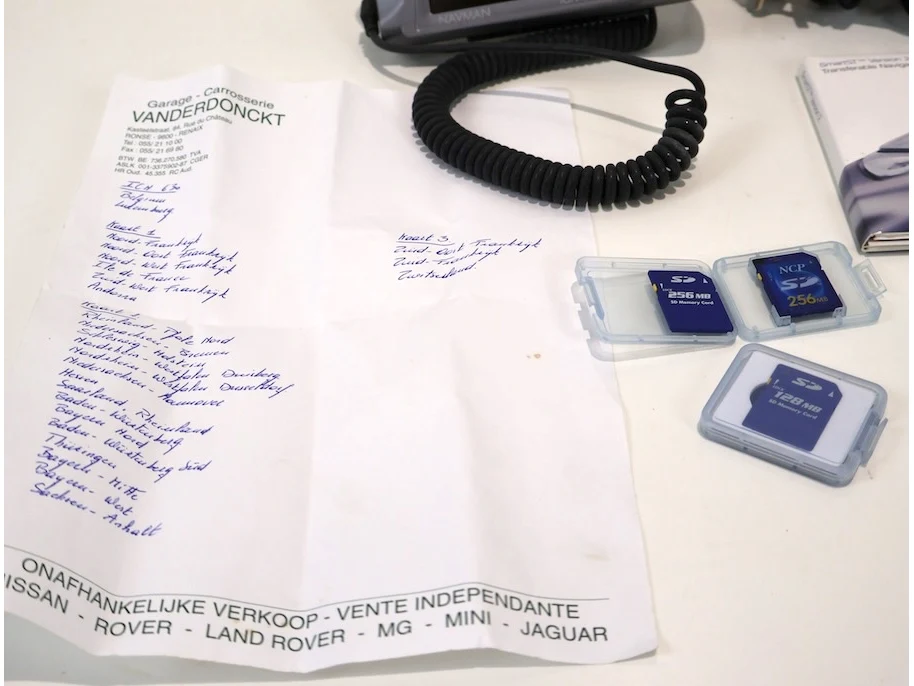 NAVMAN
SmartST™ Version
Transferable Naviga
Garage - Carrosserie
VANDERDONCKT
Kasteelstraat, 94, Rue du Château
RONSE - 9600 - RENAIX
Tel : 055/ 21 10 00
Fax : 055/ 21 69 80
BTW BE 736.270.580 TVA
ASLK 001-3375902-87 CGER
HR Oud. 45.355 RC Aud.
ICN 630
Belgium
Luxemburg
Kaart 1
Noord-Frankrijk
Noord-Oost Frankrijk
Noord-West Frankrijk
Ile de France
Zuid-West Frankrijk
Andorra
Kaart 2
Rheinland-Pfalz Nord
Niedersachsen-Bremen
Schleswig-Holstein
Nordrhein-Westfalen Duisburg
Nordrhein-Westfalen Dusseldorf
Niedersachsen-Hannover
Hessen
Saarland Rheinland
Baden-Würtenberg
Bayern Nord
Baden-Würtenberg Süd
Thüringen
Bayern-Mitte
Bayern-West
Sachsen-Anhalt
Kaart 3
Zuid-Oost Frankrijk
Zuid-Frankrijk
Zwitserland
SD
256 MB
SD Memory Card
NCP
SD
256MB
SD
128 MB
SD Memory Card
ONAFHANKELIJKE VERKOOP - VENTE INDEPENDANTE
NISSAN - ROVER - LAND ROVER - MG - MINI - JAGUAR